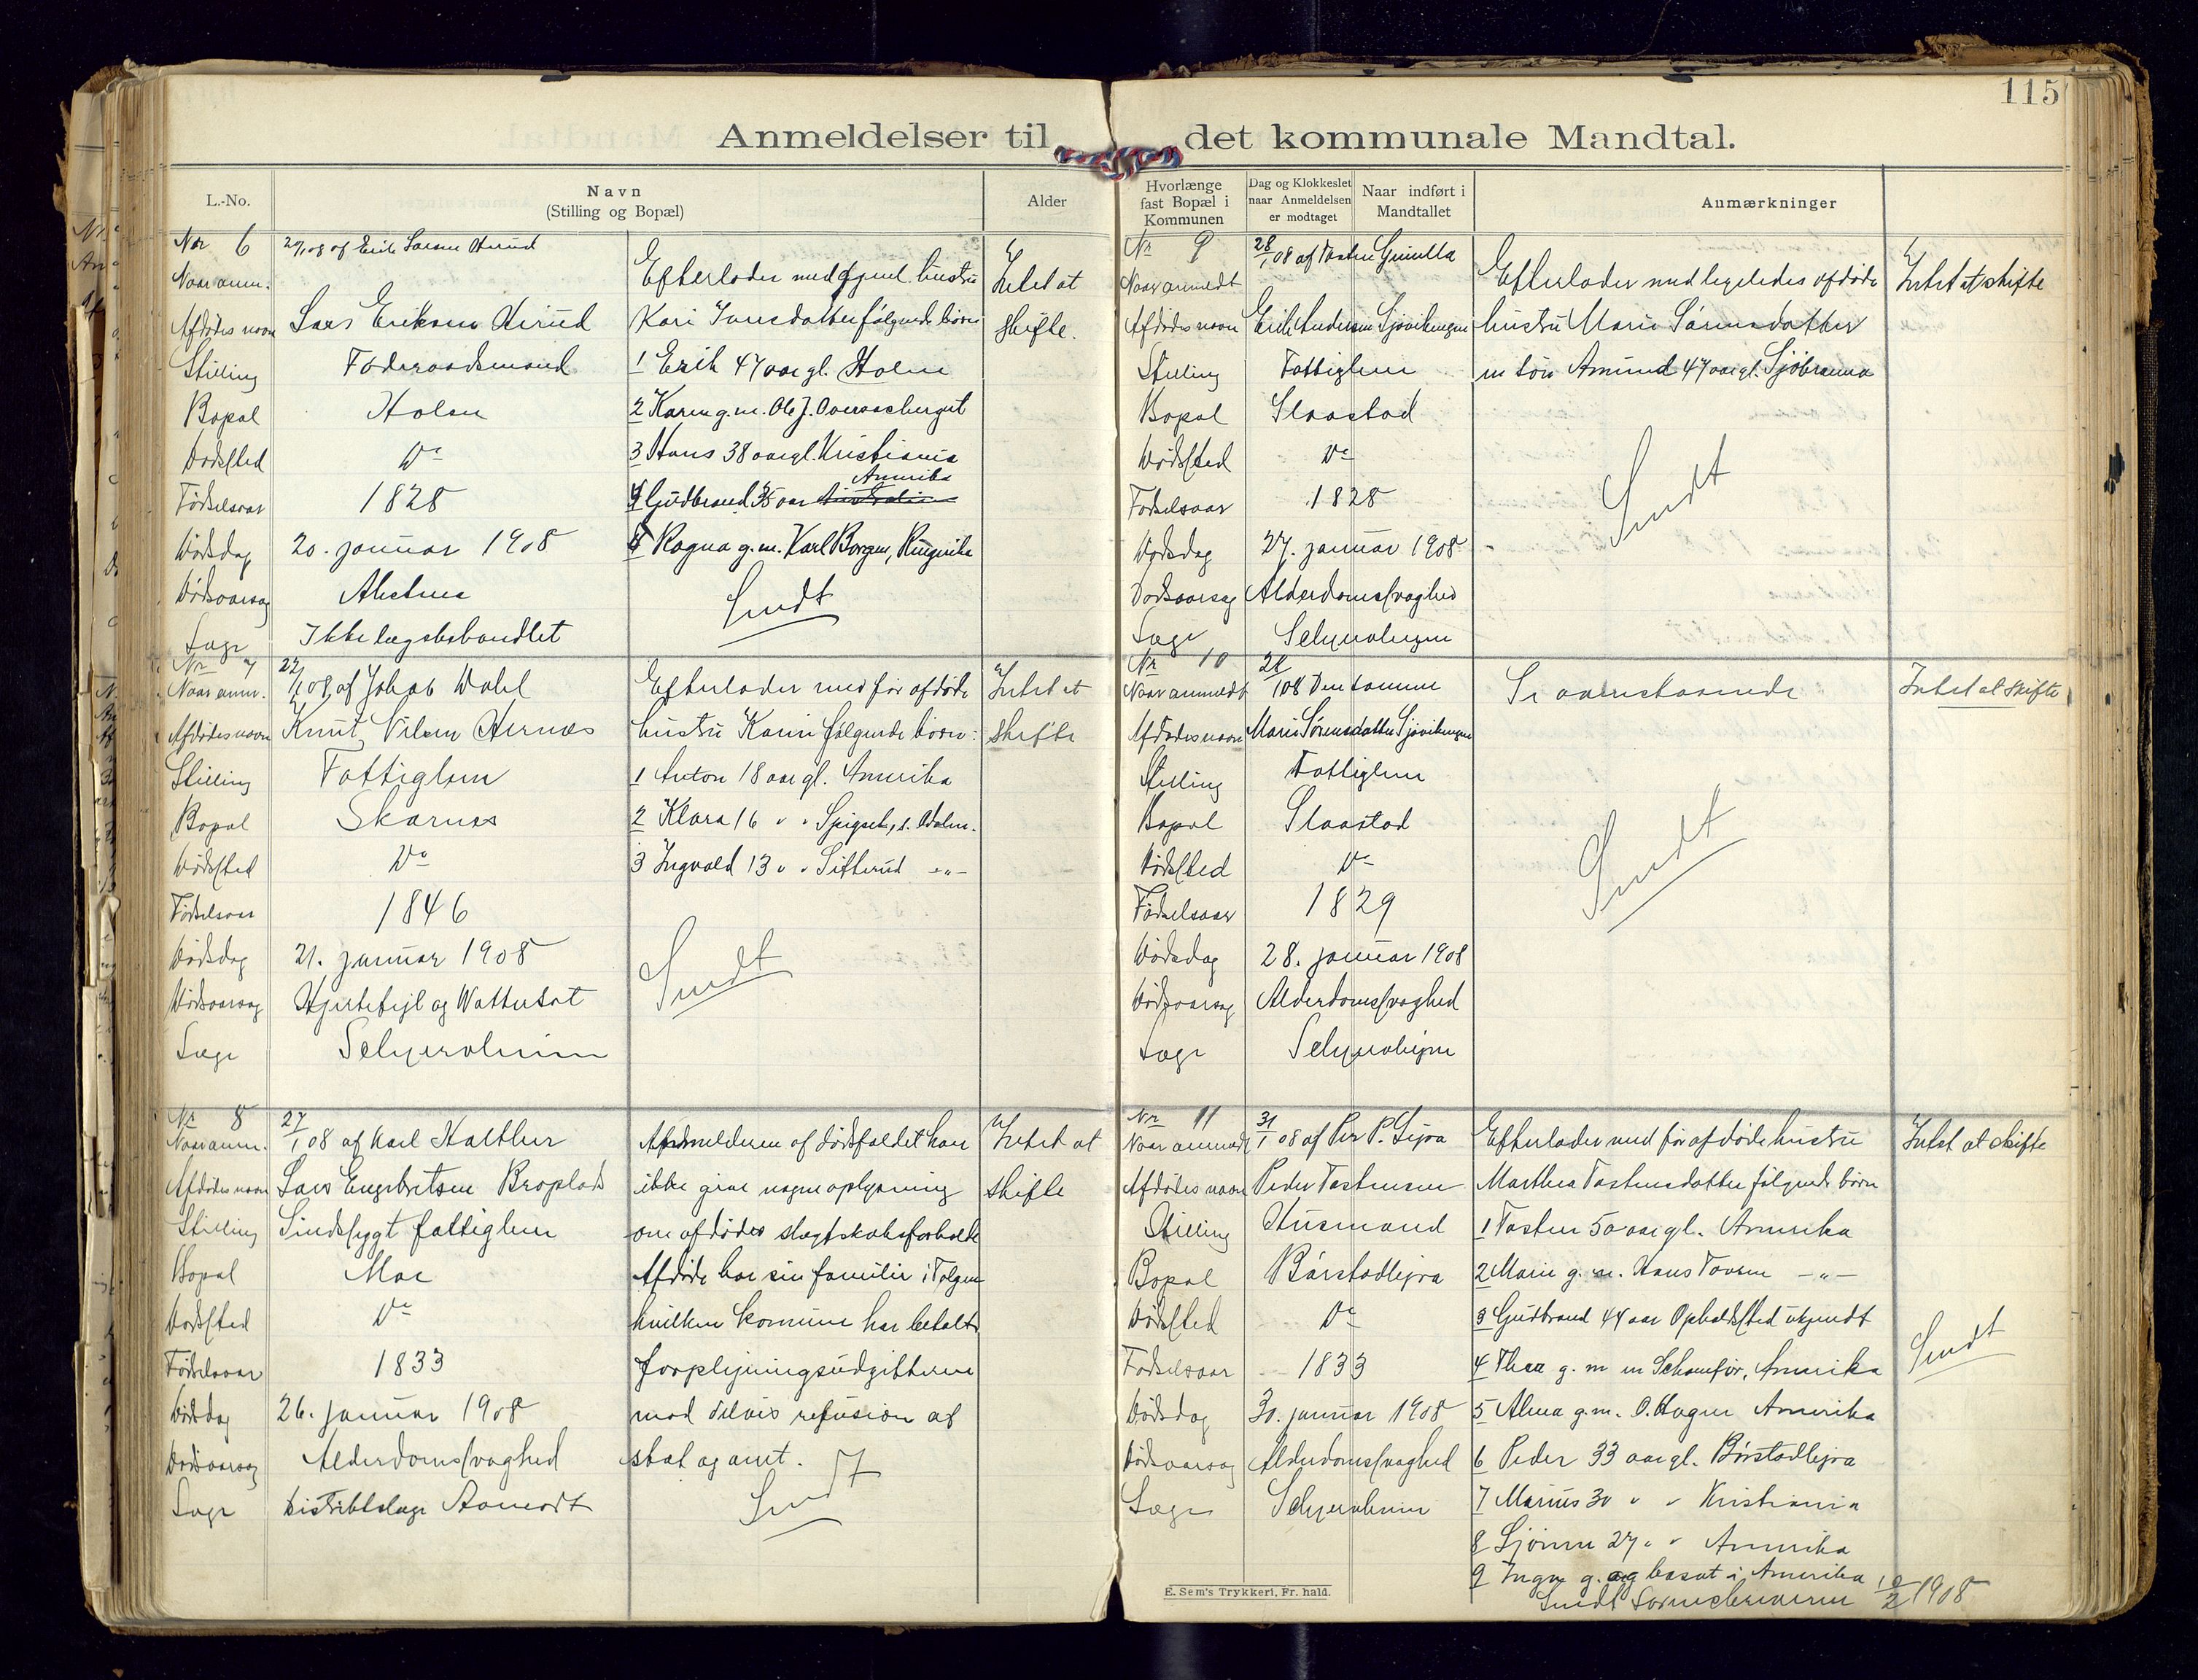 115
Anmeldelser til det kommunale Mandtal.
L.-No.
Navn
(Stilling og Bopæl)
Alder
Hvorlænge fast Bopæl i Kommunen
Dag og Klokkeslet naar Anmeldelsen er modtaget
Naar indført i Mandtallet
Anmærkninger
Nr 6
Naar anm. 20/1 08 af Erik Larsen Herud
Afdødes navn Lars Eriksen Herud
Stilling Føderaadsmand
Bopæl Holen
Dødssted Do
Fødselsaar 1828
Dødsdag 20. januar 1908
Dødsaarsag Alectmes
Læge Ikke lægebehandlet
Efterlader med gjenl. hustru
Kari Jensdatter følgende børn
1 Erik 47 aar gl. Holen
2 Karen g. m. Ole J. Overaasberget
3 Hans 38 aar gl. Kristiania
Amerika
4 Gudbrand 35 aar Australien
5 Ragna g. m. Karl Borgen, Ringerike
Sendt
Intet at
skifte.
Nr 7
Naar anm. 22/1 08, af Jakob Dahl
Afdødes navn Knut Nilsen Hernæs
Stilling Fattiglem
Bopæl Skarnes
Dødssted Do
Fødselsaar 1846
Dødsdag 21. januar 1908
Dødsaarsag Hjertefejl og Wattersot
Læge Schjervheim
Efterlader med før afdøde
hustru Karin følgende børn:
1 Anton 18 aar gl. Amerika
2 Klara 16 " " Spigset, s. Odalen.
3 Ingvald 13 " " Sitterud -"-
Sendt
Intet at
skifte
Nr 8
Naar anm. 27/1 08 af Karl Kolther
Afdødes navn Lars Engebretsen Braplads
Stilling Sindssygt fattiglem
Bopæl Moe
Dødssted Do
Fødselsaar 1833
Dødsdag 26. januar 1908
Dødsaarsag Alderdomssvaghed
Læge Distriktslæge Aamodt
Anmelderen af dødsfaldet kan
ikke give nogen oplysning
om afdødes slægtskabsforholde
Afdøde har sin familie i Tolgen
hvilken kommune har betalt
forplejningsudgifterne
mod delvis refusion af
stat og amt.
Sendt
Intet at
skifte
Nr 9
Naar anmeldt 28/1 08 af Tosten Gunilla
Afdødes navn Erik Andersen Sjøvikengen
Stilling Fattiglem
Bopæl Slaastad
Dødssted Do
Fødselsaar 1828
Dødsdag 27. januar 1908
Dødsaarsag Alderdomssvaghed
Læge Schjervheim
Efterlader med ligeledes afdøde
hustru Marie Sørensdatter
en søn Amund 47 aar gl. Sjøbrænna
Sendt
Intet at skifte
Nr 10
Naar anmeldt 28/1 08 Den samme
Afdødes navn Marie Sørensdatter Sjøvikengen
Stilling Fattiglem
Bopæl Slaastad
Dødssted Do
Fødselsaar 1829
Dødsdag 28. januar 1908
Dødsaarsag Alderdomssvaghed
Læge Schjervheim
Se ovenstaaende
Sendt
Intet at skifte
Nr 11
Naar anmeldt 31/1 08 af Per P. Lejra
Afdødes navn Peder Tostensen
Stilling Husmand
Bopæl Børstadlejra
Dødssted Do
Fødselsaar 1833
Dødsdag 30. januar 1908
Dødsaarsag Alderdomssvaghed
Læge Schjervheim
Efterlader med før afdøde hustru
Marthea Tostensdatter følgende børn
1 Tosten 50 aar gl. Amerika
2 Marie g. m. Hans Tovsen -"-
3 Gudbrand 44 aar Opholdssted ukjendt
4 Thea g. m en Schamfør, Amerika
5 Alma g. m. O. Hagen Amerika
6 Peder 33 aar gl. Børstadlejra
7 Marius 30 " " Kristiania
8 Sjønne 27 " " Amerika
9 Inga g. og bosat i Amerika
Sendt Sorenskriveren 10/2 1908
Intet at skifte
Sendt
E. Sem's Trykkeri, Fr. hald.